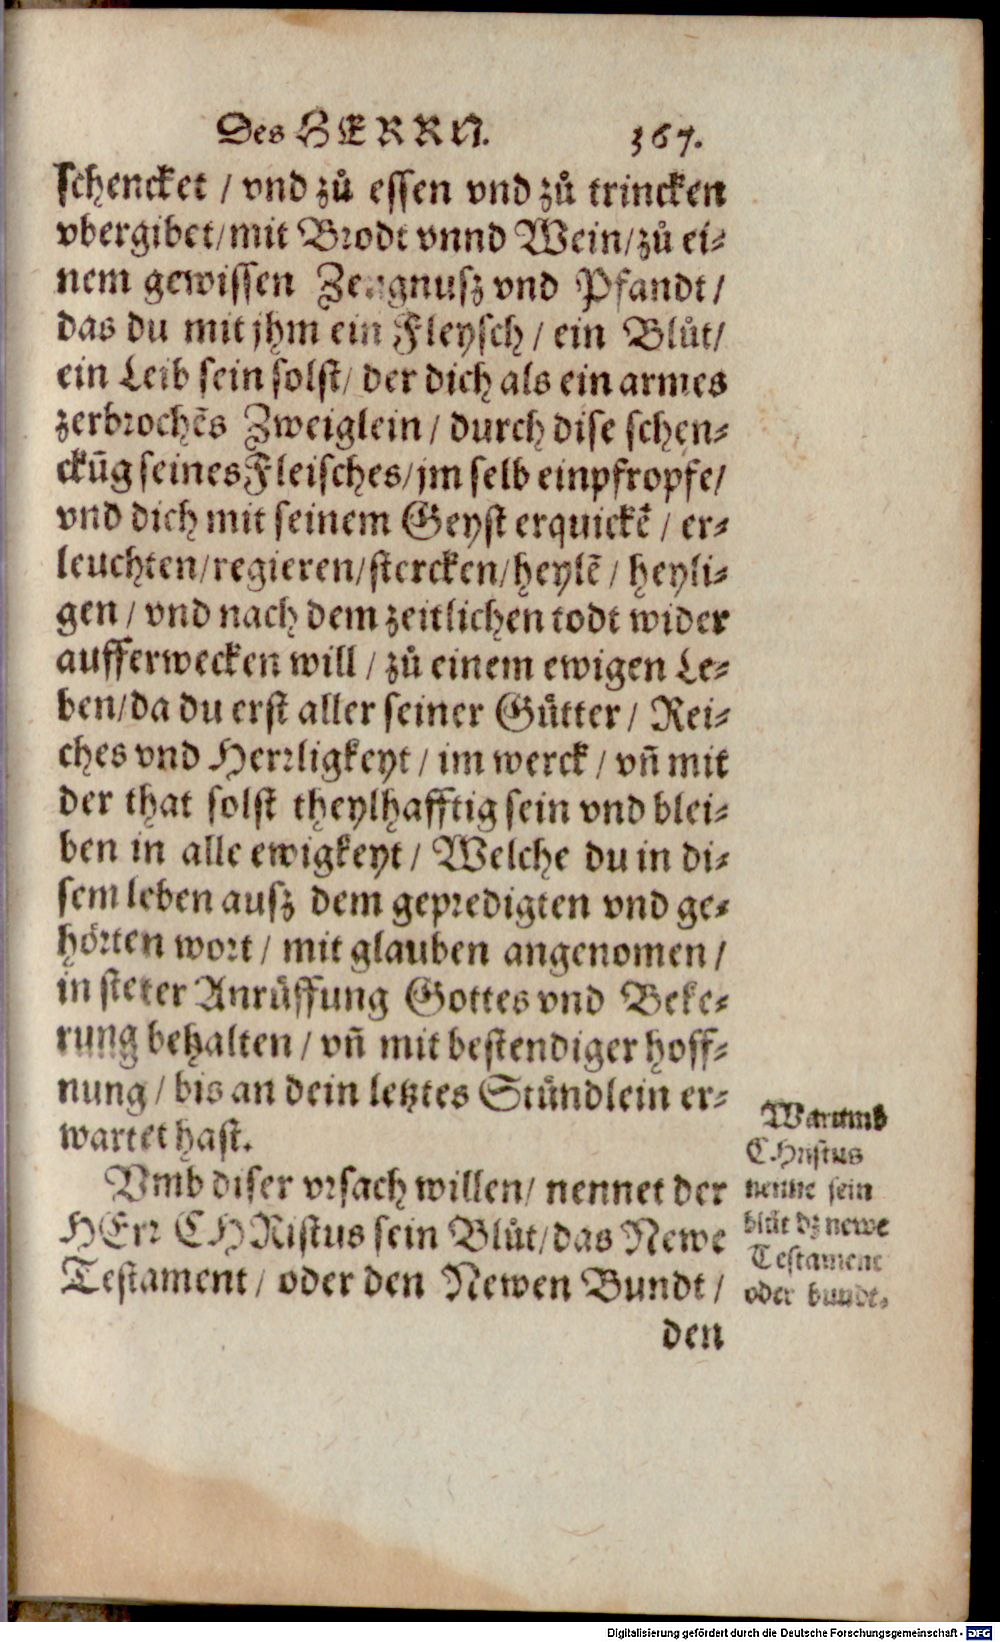 Des HERRN. 367.
schencket / vnd zů essen vnd zů trincken
vbergibet / mit Brodt vnnd Wein / zů ei-
nem gewissen Zeugnusz vnd Pfandt /
das du mit jhm ein Fleysch / ein Blůt /
ein Leib sein solst / der dich als ein armes
zerbrochẽs Zweiglein / durch dise schen-
ckũg seines Fleisches / jm selb einpfropfe /
vnd dich mit seinem Geyst erquickẽ / er-
leuchten / regieren / stercken / heylẽ / heyli-
gen / vnd nach dem zeitlichen todt wider
aufferwecken will / zů einem ewigen Le-
ben / da du erst aller seiner Gůtter / Rei-
ches vnd Herrligkeyt / im werck / vñ mit
der that solst theylhafftig sein vnd blei-
ben in alle ewigkeyt / Welche du in di-
sem leben ausz dem gepredigten vnd ge-
hörten wort / mit glauben angenomen /
in steter Anrůffung Gottes vnd Beke-
rung behalten / vñ mit bestendiger hoff-
nung / bis an dein letztes Stündlein er-
wartet hast.
Vmb diser vrsach willen / nennet der
HErr CHRistus sein Blůt / das Newe
Testament / oder den Newen Bundt /
den
Warumb
CHristus
nenne sein
blůt dz newe
Testament
oder bundt.
Digitalisierung gefördert durch die Deutsche Forschungsgemeinschaft - DFG